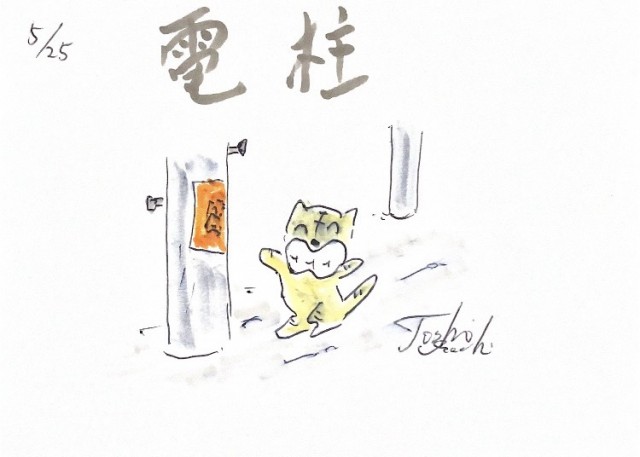 5/25
電柱
Toshio